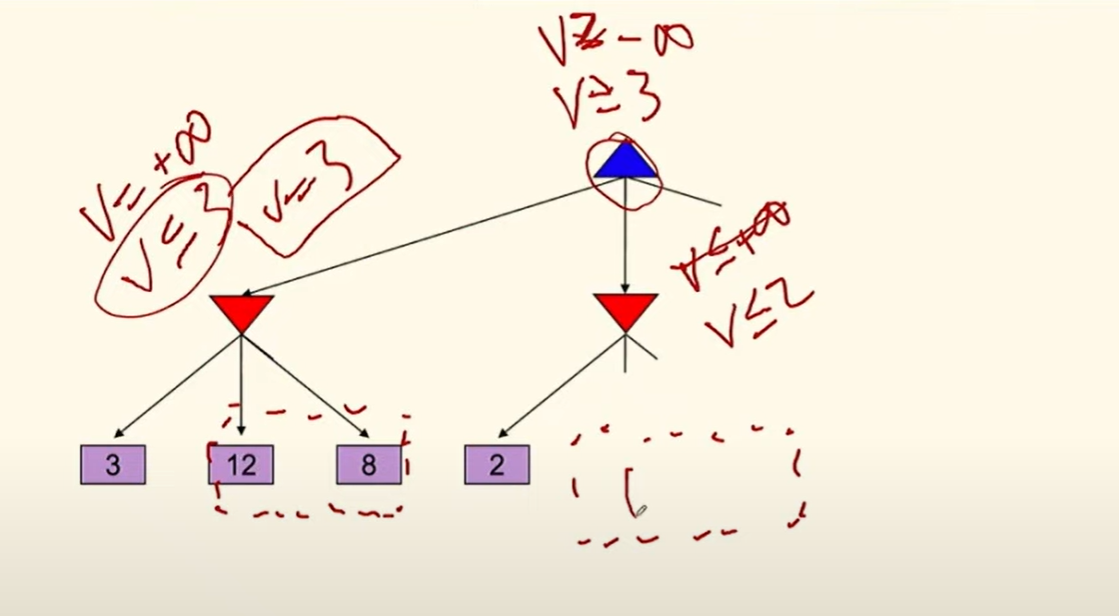 V≥ -∞
V≥3
V= +∞
V≤3
V=3
V≤+∞
V≤2
3 12 8 2